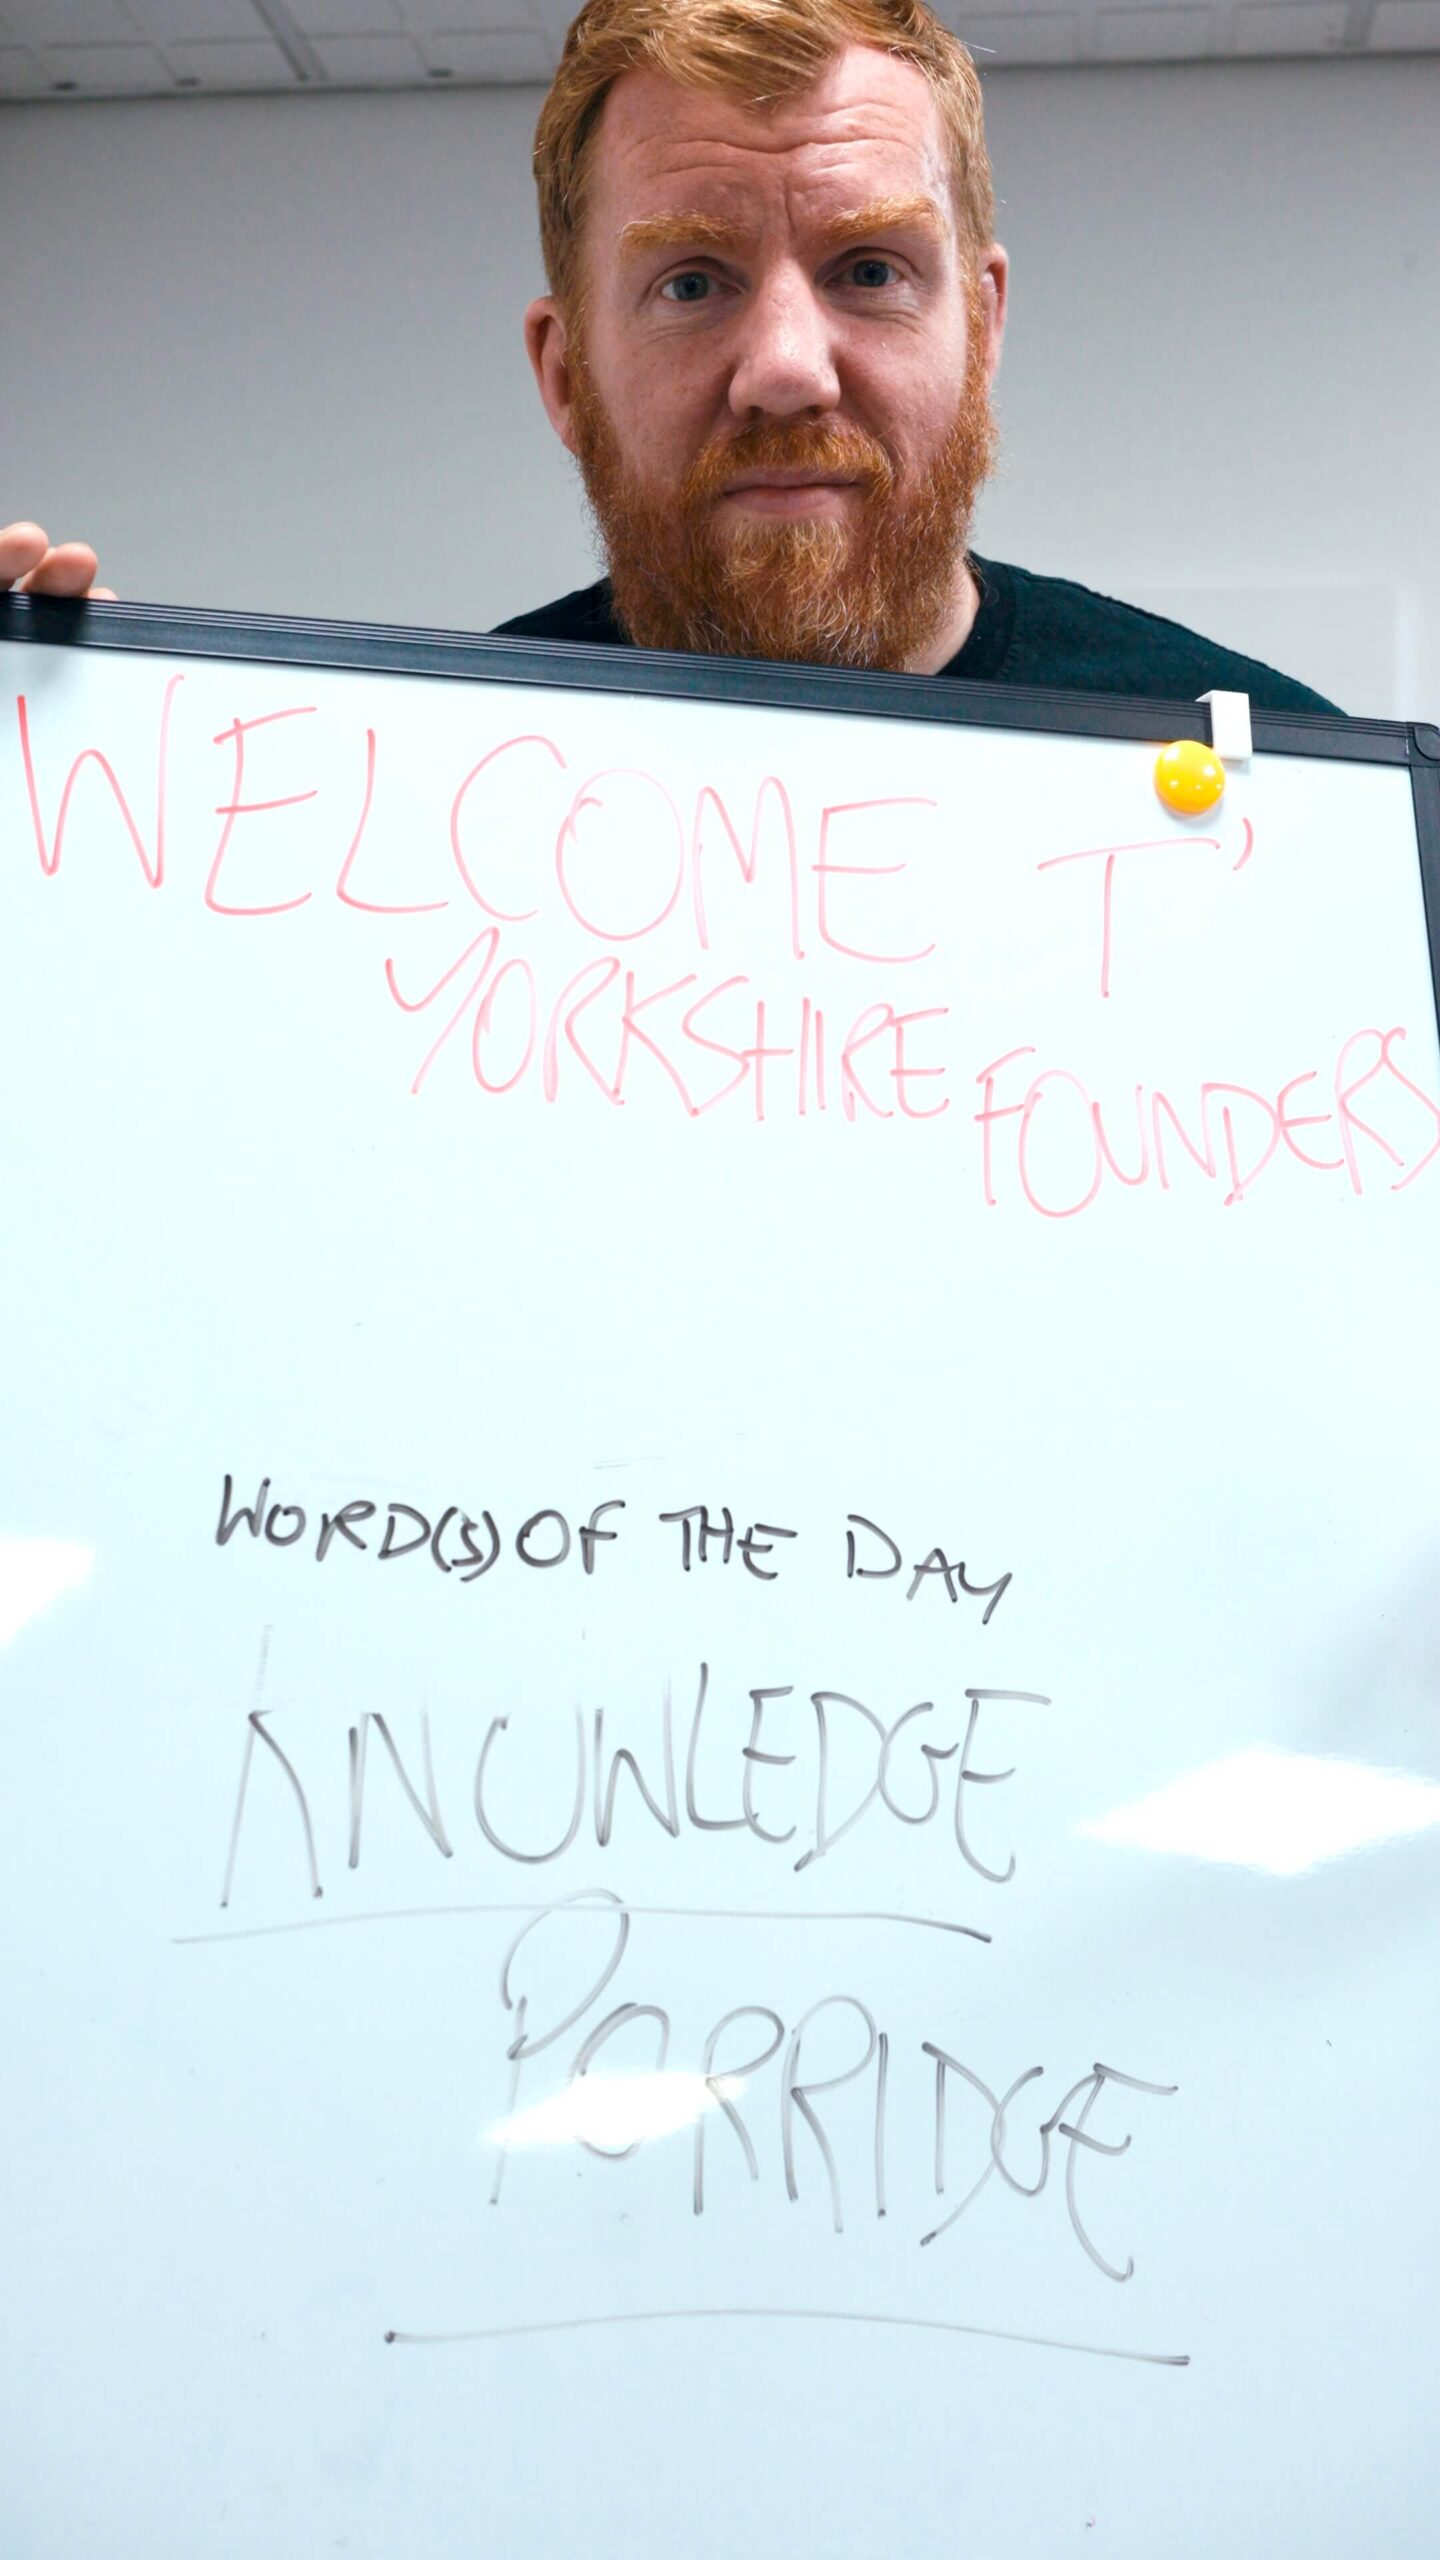 WELCOME T'
YORKSHIRE FOUNDERS
WORD(S) OF THE DAY
KNOWLEDGE
PORRIDGE